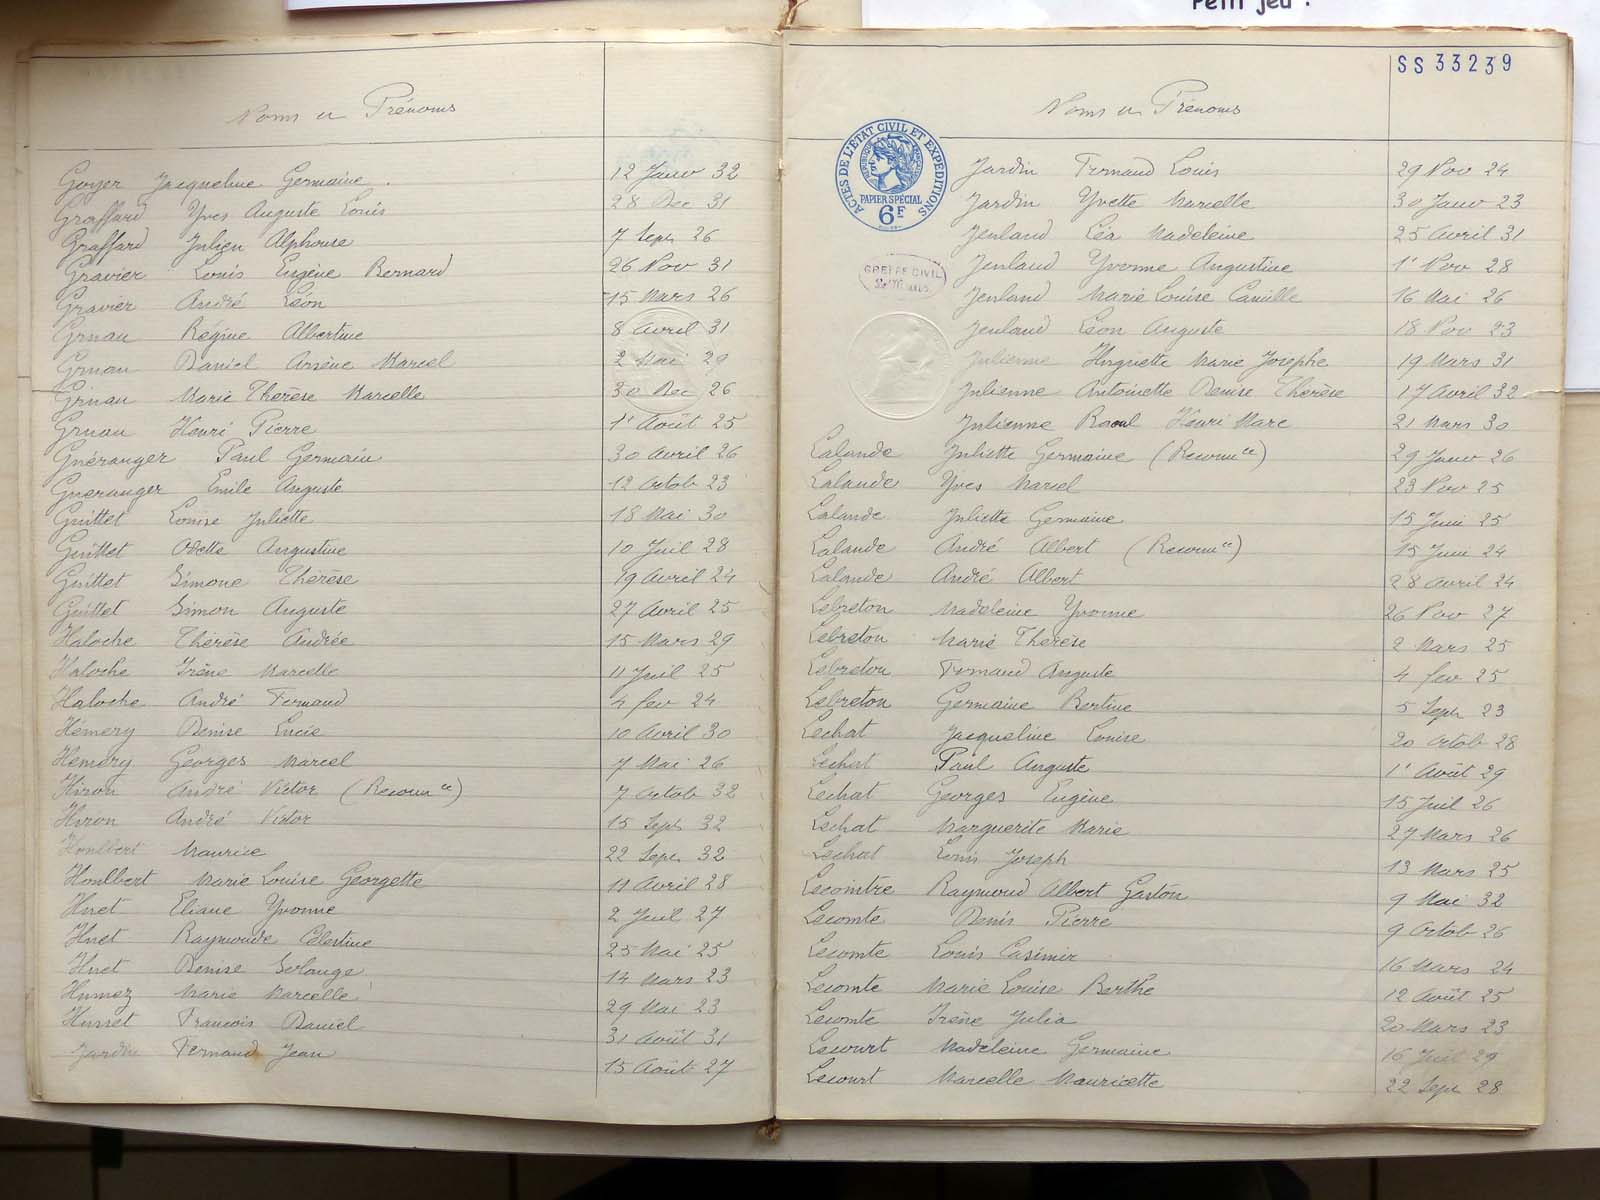 Petit jeu :
Noms et Prénoms
Goyer Jacqueline Germaine. 12 Janv 32
Graffard Yves Auguste Louis 28 Dec 31
Graffard Julien Alphonse 7 Sept 26
Gravier Louis Eugène Bernard 26 Nov 31
Gravier André Léon 15 Mars 26
Gruau Régine Albertine 8 Avril 31
Gruau Daniel Arsène Marcel 2 Mai 29
Gruau Marie Thérèse Marcelle 30 Dec 26
Gruau Henri Pierre 1r Août 25
Guéranger Paul Germain 30 Avril 26
Gueranger Emile Auguste 12 Octob 23
Guittet Louise Juliette 18 Mai 30
Guittet Odette Augustine 10 Juil 28
Guittet Simone Thérèse 19 Avril 24
Guittet Simon Auguste 27 Avril 25
Haloche Thérèse Andrée 15 Mars 29
Haloche Irène Marcelle 11 Juil 25
Haloche André Fernand 4 fev 24
Hémery Denise Lucie 10 Avril 30
Hemery Georges Marcel 7 Mai 26
Hiron André Victor (Reconnce) 7 Octob 32
Hiron André Victor 15 Sept 32
Houlbert Maurice 22 Sept 32
Houlbert Marie Louise Georgette 11 Avril 28
Huet Eliane Yvonne 2 Juil 27
Huet Raymonde Célestine 25 Mai 25
Huet Denise Solange 14 Mars 23
Humez Marie Marcelle 29 Mai 23
Husset Francois Daniel 31 Août 31
Jardin Fernand Jean 15 Août 27
SS 33239
Noms et Prénoms
ACTES DE L'ÉTAT CIVIL ET EXPÉDITIONS
PAPIER SPÉCIAL
6F
GREFFE CIVIL
Jardin Fernand Louis 29 Nov 24
Jardin Yvette Marcelle 30 Janv 23
Jenland Léa Madeleine 25 Avril 31
Jenland Yvonne Augustine 1r Nov 28
Jenland Marie Louise Camille 16 Mai 26
Jenland Léon Auguste 18 Nov 23
Julienne Huguette Marie Josephe 19 Mars 31
Julienne Antoinette Denise Thérèse 17 Avril 32
Julienne Raoul Henri Marc 21 Mars 30
Lalande Juliette Germaine (Reconnce) 29 Janv 26
Lalande Yves Marcel 23 Nov 25
Lalande Juliette Germaine 15 Juin 25
Lalande André Albert (Reconnce) 15 Juin 24
Lalande André Albert 28 Avril 24
Lebreton Madeleine Yvonne 26 Nov 27
Lebreton Marie Thérèse 2 Mars 25
Lebreton Fernand Auguste 4 fev 25
Lebreton Germaine Bertine 5 Sept 23
Lechat Jacqueline Louise 20 Octob 28
Lechat Paul Auguste 1r Août 29
Lechat Georges Eugène 15 Juil 26
Lechat Marguerite Marie 27 Mars 26
Lechat Louis Joseph 13 Mars 25
Lecomtre Raymond Albert Gaston 9 Mai 32
Lecomte Denis Pierre 9 Octob 26
Lecomte Louis Casimir 16 Mars 24
Lecomte Marie Louise Berthe 12 Août 25
Lecomte Irène Julia 20 Mars 23
Lecourt Madeleine Germaine 16 Juil 29
Lecourt Marcelle Mauricette 22 Sept 28